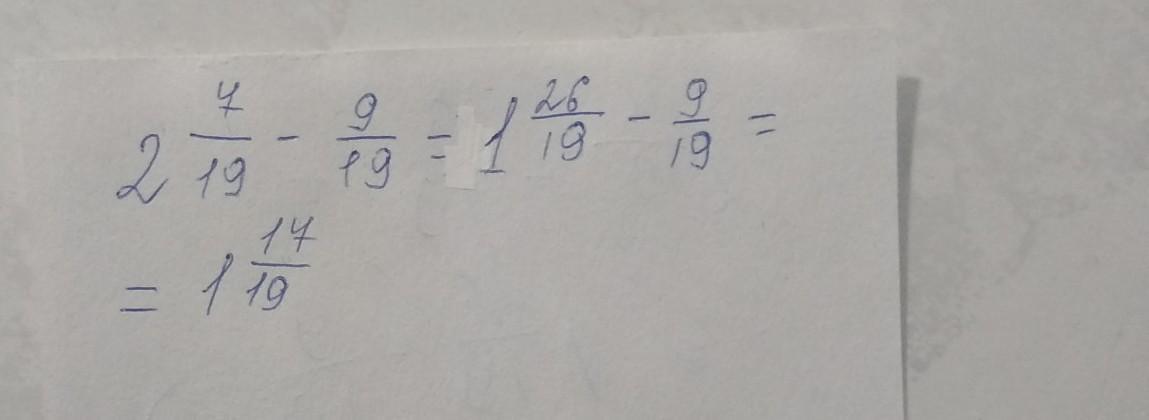 2 7/19 - 9/19 = 1 26/19 - 9/19 =
= 1 17/19